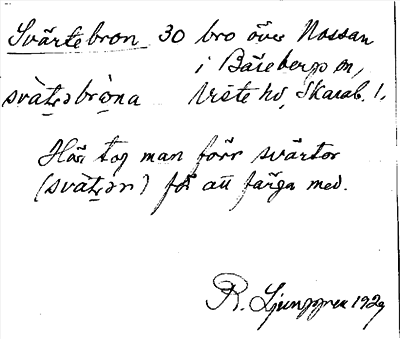 Svärtebron 30 bro över Nossan
i Bärebergs sn,
svä̀t̯əbrò̤na Viste hd, Skarab. l.
Här tog man förr svärtor
(svä̀t̯ər) för att färga med.
R. Ljunggren 1929